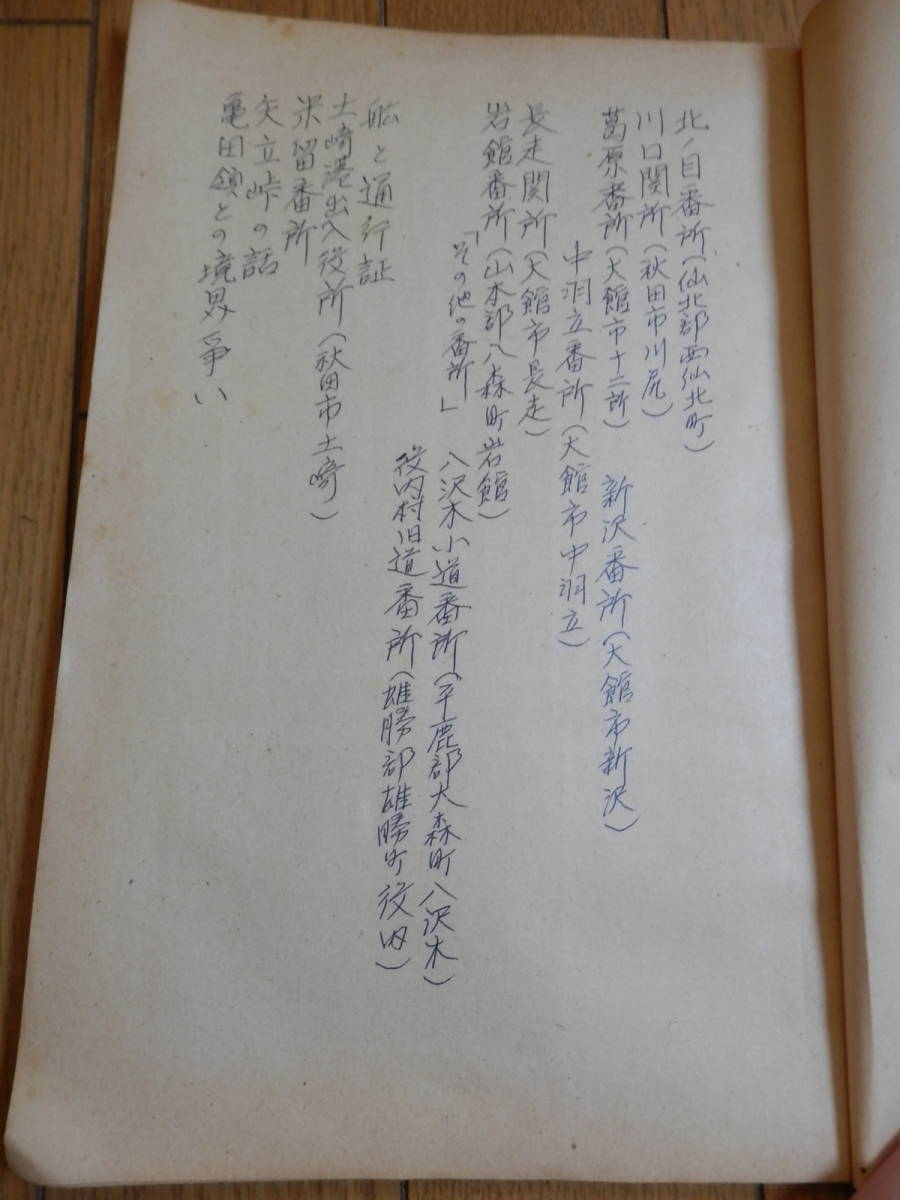 北ノ目番所(仙北郡西仙北町)
川口関所(秋田市川尻)
葛原番所(大館市十二所) 新沢番所(大館市新沢)
中羽立番所(大館市中羽立)
長走関所(大館市長走)
岩館番所(山本郡八森町岩館)
「その他の番所」 八沢木小道番所(平鹿郡大森町八沢木)
役内村旧道番所(雄勝郡雄勝町役内)
舩と通行証
土崎港出入役所(秋田市土崎)
米留番所
矢立峠の話
亀田領との境界争い